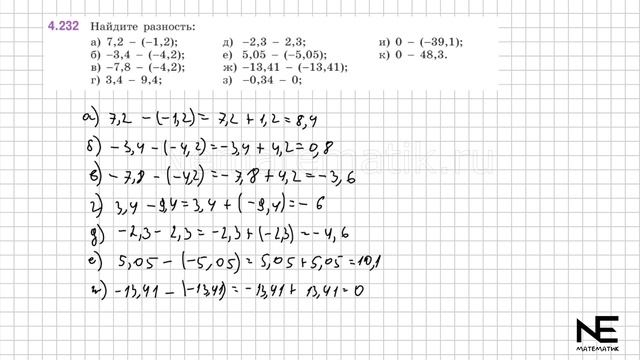 4.232 Найдите разность:
а) 7,2 – (–1,2); д) –2,3 – 2,3; и) 0 – (–39,1);
б) –3,4 – (–4,2); е) 5,05 – (–5,05); к) 0 – 48,3.
в) –7,8 – (–4,2); ж) –13,41 – (–13,41);
г) 3,4 – 9,4; з) –0,34 – 0;
а) 7,2 – (–1,2) = 7,2 + 1,2 = 8,4
б) –3,4 – (–4,2) = –3,4 + 4,2 = 0,8
в) –7,8 – (–4,2) = –7,8 + 4,2 = –3,6
г) 3,4 – 9,4 = 3,4 + (–9,4) = –6
д) –2,3 – 2,3 = –2,3 + (–2,3) = –4,6
е) 5,05 – (–5,05) = 5,05 + 5,05 = 10,1
ж) –13,41 – (–13,41) = –13,41 + 13,41 = 0
NE
МАТЕМАТИК